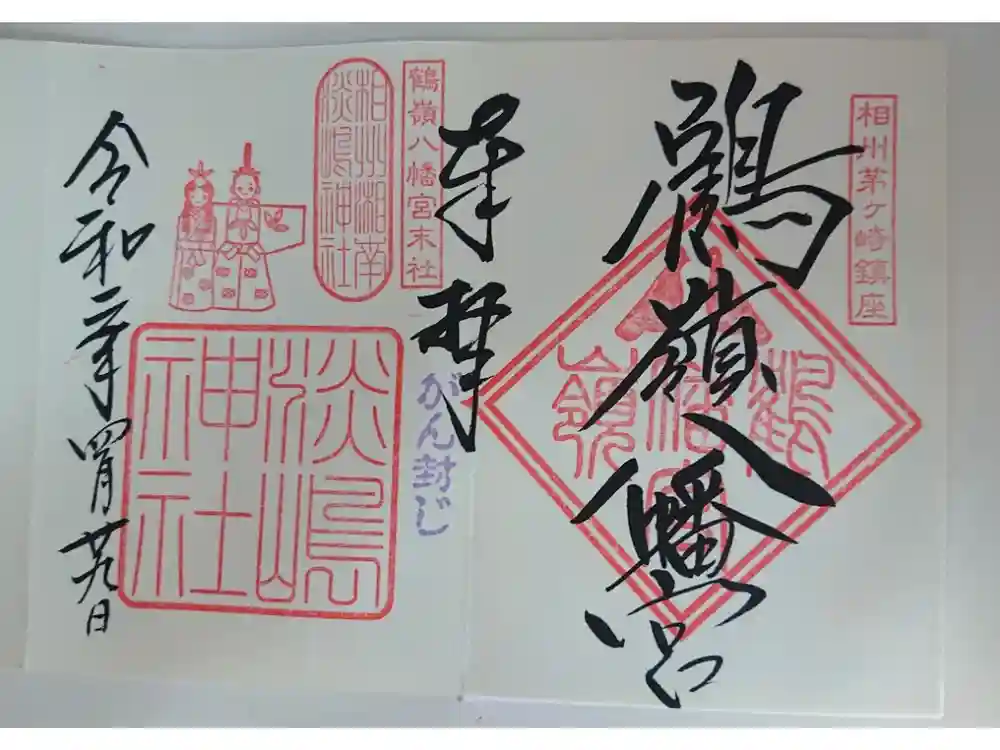 相州茅ヶ崎鎮座
鶴嶺八幡宮
鶴嶺
奉拝
鶴嶺八幡宮末社
相州湘南
淡嶋神社
がん封じ
淡嶋
神社
令和二年四月廿九日